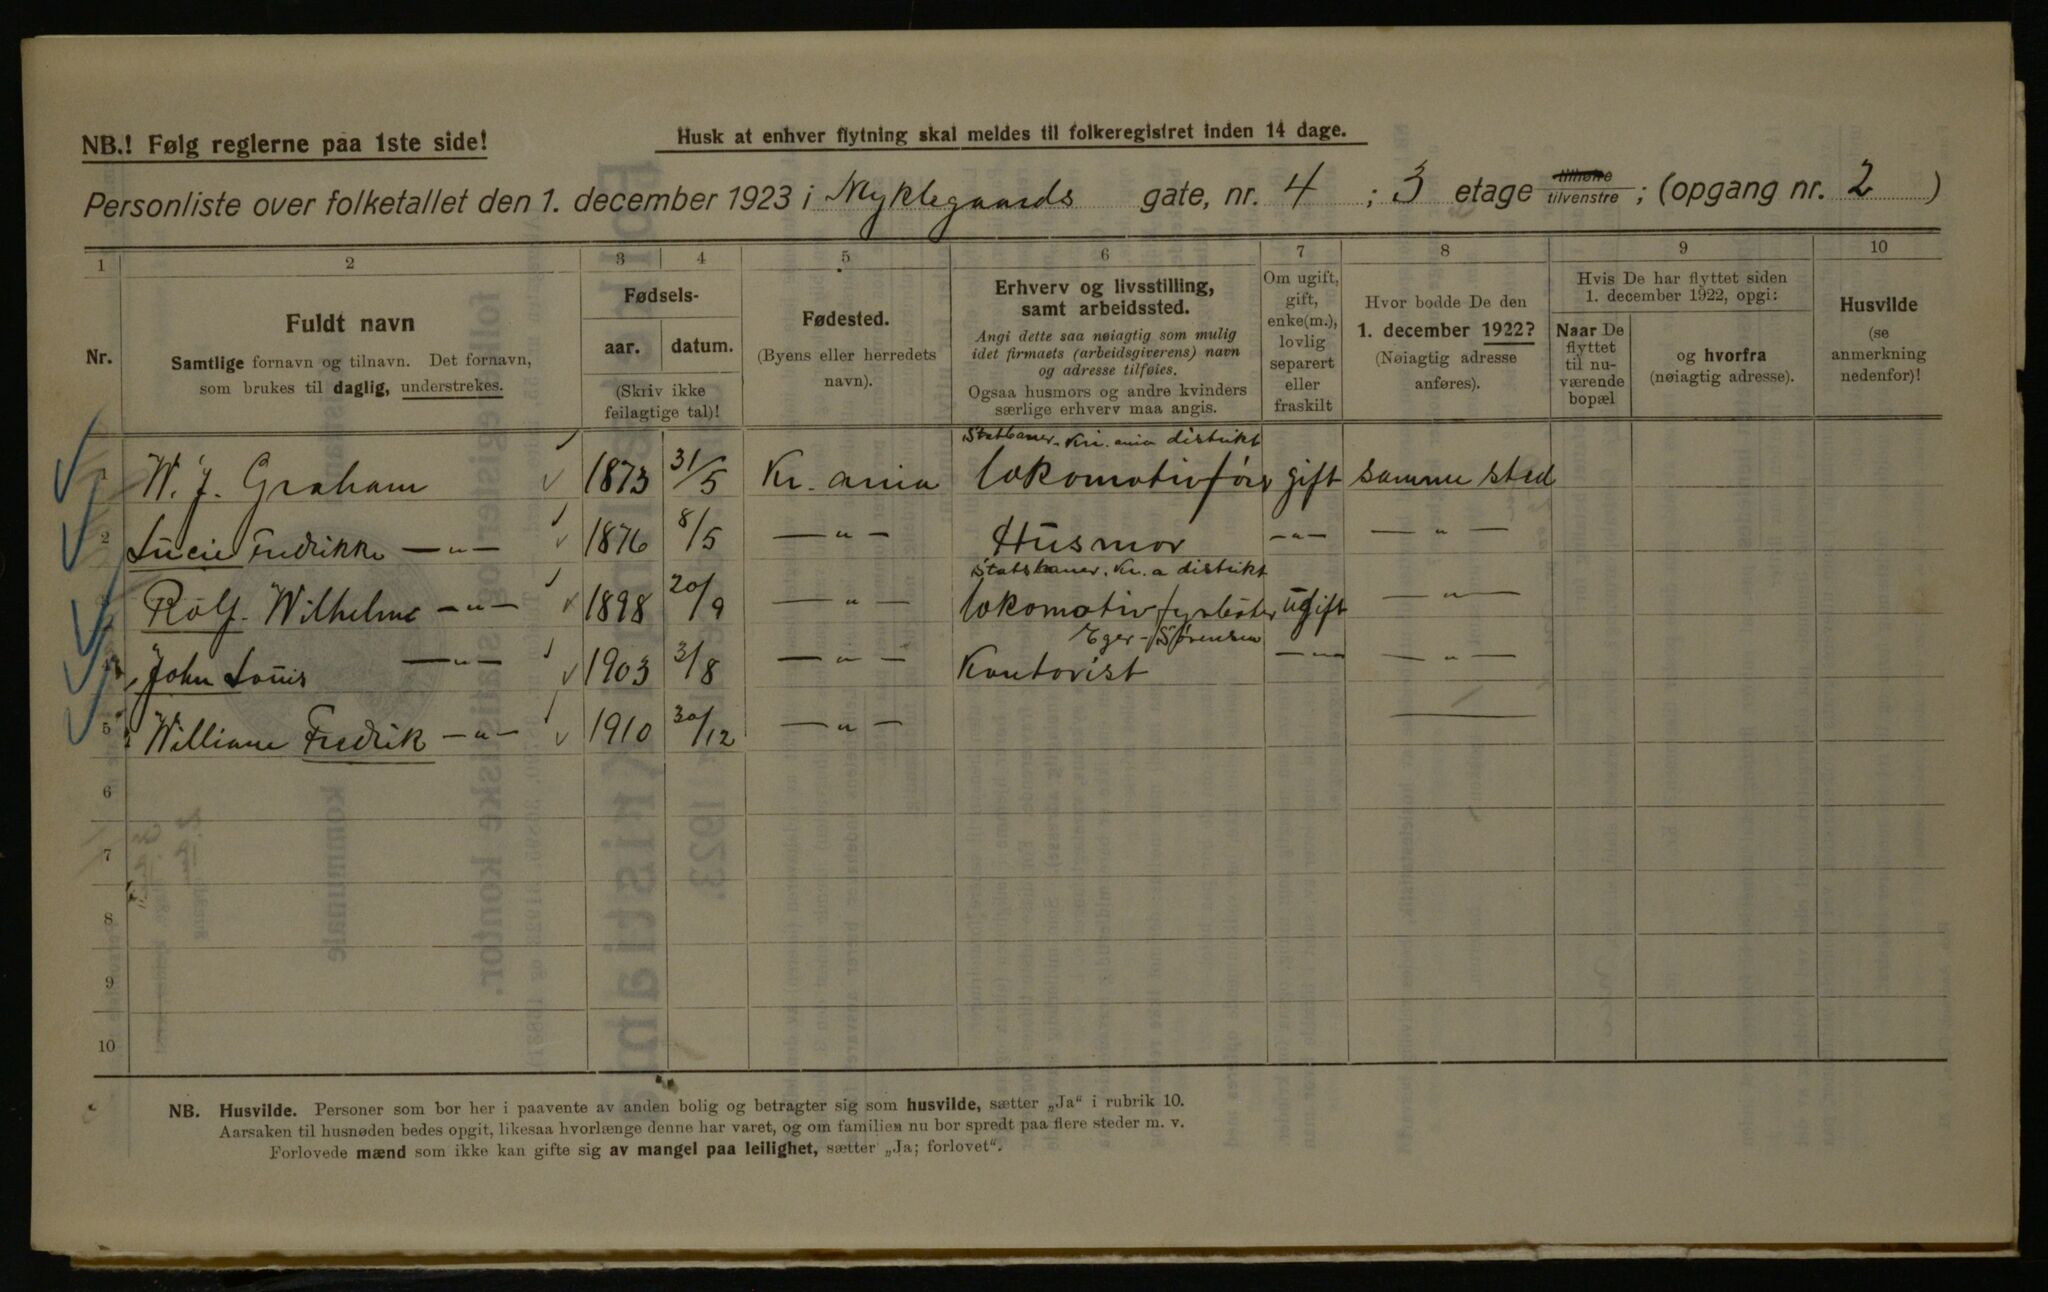 NB.! Følg reglerne paa 1ste side!
Husk at enhver flytning skal meldes til folkeregistret inden 14 dage.
Personliste over folketallet den 1. december 1923 i Nyklegaards gate, nr. 4 ; 3 etage tilhøire tilvenstre ; (opgang nr. 2 )
1 2 3 4 5 6 7 8 9 10
Nr.
Fuldt navn
Samtlige fornavn og tilnavn. Det fornavn,
som brukes til daglig, understrekes.
Fødsels-
aar. datum.
(Skriv ikke
feilagtige tal)!
Fødested.
(Byens eller herredets
navn).
Erhverv og livsstilling,
samt arbeidssted.
Angi dette saa nøiagtig som mulig
idet firmaets (arbeidsgiverens) navn
og adresse tilføies.
Ogsaa husmors og andre kvinders
særlige erhverv maa angis.
Om ugift,
gift,
enke(m.),
lovlig
separert
eller
fraskilt
Hvor bodde De den
1. december 1922?
(Nøiagtig adresse
anføres).
Hvis De har flyttet siden
1. december 1922, opgi:
Naar De
flyttet
til nu-
værende
bopæl
og hvorfra
(nøiagtig adresse).
Husvilde
(se
anmerkning
nedenfor)!
Statbaner. Kri.ania distrikt
1 W. J. Graham 1873 31/5 Kr.ania lokomotivfører gift samme sted
2 Lucie Fredrikke —„— 1876 8/5 —„— Husmor —„— —„—
Statsbaner. Kr.a distrikt
3 Rolf Wilhelm —„— 1898 20/9 —„— lokomotivfyrbøter ugift —„—
Eger-Sørensen
4 John Louis —„— 1903 3/8 —„— Kontorist —„— —„—
5 William Fredrik —„— 1910 30/12 —„— —
6
7
8
9
10
NB. Husvilde. Personer som bor her i paavente av anden bolig og betragter sig som husvilde, sætter „Ja“ i rubrik 10.
Aarsaken til husnøden bedes opgit, likesaa hvorlænge denne har varet, og om familien nu bor spredt paa flere steder m. v.
Forlovede mænd som ikke kan gifte sig av mangel paa leilighet, sætter „Ja; forlovet“.